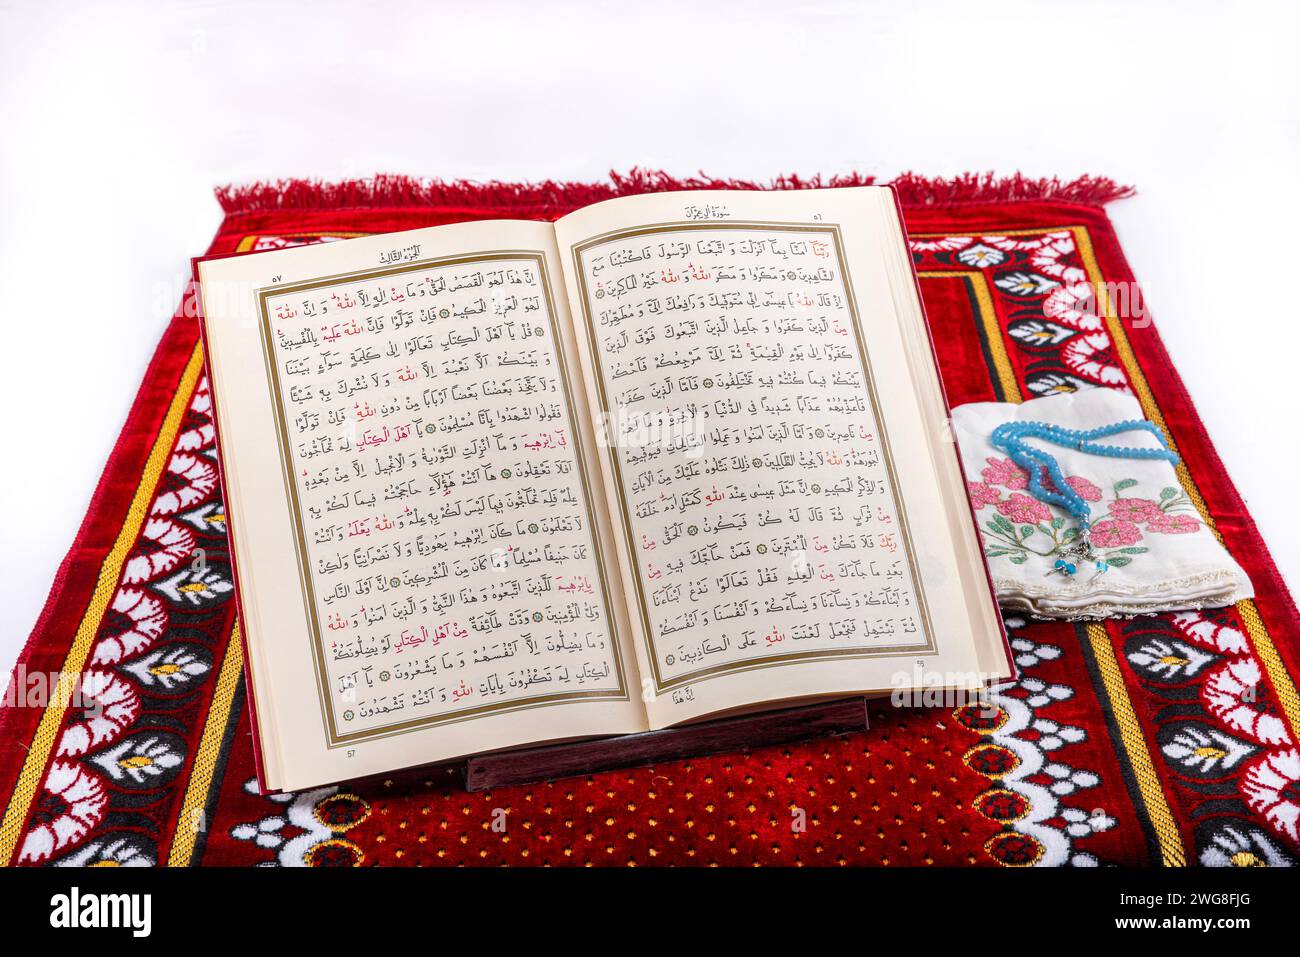 ٥٦ سُورَةُ اٰلِ عِمْرٰنَ
رَبَّنَٓا اٰمَنَّا بِمَٓا اَنْزَلْتَ وَ اتَّبَعْنَا الرَّسُولَ فَاكْتُبْنَا مَعَ
الشَّاهِدِينَ ﴿٥٣﴾ وَ مَكَرُوا وَ مَكَرَ اللّٰهُ وَ اللّٰهُ خَيْرُ الْمَاكِرِينَ ﴿٥٤﴾
اِذْ قَالَ اللّٰهُ يَا عِيسٰٓى اِنِّي مُتَوَفِّيكَ وَ رَافِعُكَ اِلَيَّ وَ مُطَهِّرُكَ
مِنَ الَّذِينَ كَفَرُوا وَ جَاعِلُ الَّذِينَ اتَّبَعُوكَ فَوْقَ الَّذِينَ
كَفَرُٓوا اِلٰى يَوْمِ الْقِيٰمَةِ ثُمَّ اِلَيَّ مَرْجِعُكُمْ فَاَحْكُمُ
بَيْنَكُمْ فِيمَا كُنْتُمْ فِيهِ تَخْتَلِفُونَ ﴿٥٥﴾ فَاَمَّا الَّذِينَ كَفَرُوا
فَاُعَذِّبُهُمْ عَذَاباً شَدِيداً فِي الدُّنْيَا وَ الْاٰخِرَةِ وَ مَا لَهُمْ
مِنْ نَاصِرِينَ ﴿٥٦﴾ وَ اَمَّا الَّذِينَ اٰمَنُوا وَ عَمِلُوا الصَّالِحَاتِ فَيُوَفِّيهِمْ
اُجُورَهُمْ وَ اللّٰهُ لَا يُحِبُّ الظَّالِمِينَ ﴿٥٧﴾ ذٰلِكَ نَتْلُوهُ عَلَيْكَ مِنَ الْاٰيَاتِ
وَ الذِّكْرِ الْحَكِيمِ ﴿٥٨﴾ اِنَّ مَثَلَ عِيسٰى عِنْدَ اللّٰهِ كَمَثَلِ اٰدَمَ خَلَقَهُ
مِنْ تُرَابٍ ثُمَّ قَالَ لَهُ كُنْ فَيَكُونُ ﴿٥٩﴾ اَلْحَقُّ مِنْ
رَبِّكَ فَلَا تَكُنْ مِنَ الْمُمْتَرِينَ ﴿٦٠﴾ فَمَنْ حَٓاجَّكَ فِيهِ مِنْ
بَعْدِ مَا جَٓاءَكَ مِنَ الْعِلْمِ فَقُلْ تَعَالَوْا نَدْعُ اَبْنَٓاءَنَا
وَ اَبْنَٓاءَكُمْ وَ نِسَٓاءَنَا وَ نِسَٓاءَكُمْ وَ اَنْفُسَنَا وَ اَنْفُسَكُمْ
ثُمَّ نَبْتَهِلْ فَنَجْعَلْ لَعْنَتَ اللّٰهِ عَلَى الْكَاذِبِينَ ﴿٦١﴾
56
اِنَّ هٰذَا
اَلْجُزْءُ الثَّالِثُ ٥٧
اِنَّ هٰذَا لَهُوَ الْقَصَصُ الْحَقُّ وَ مَا مِنْ اِلٰهٍ اِلَّا اللّٰهُ وَ اِنَّ اللّٰهَ
لَهُوَ الْعَزِيزُ الْحَكِيمُ ﴿٦٢﴾ فَاِنْ تَوَلَّوْا فَاِنَّ اللّٰهَ عَلِيمٌ بِالْمُفْسِدِينَ
﴿٦٣﴾ قُلْ يَٓا اَهْلَ الْكِتَابِ تَعَالَوْا اِلٰى كَلِمَةٍ سَوَٓاءٍ بَيْنَنَا
وَ بَيْنَكُمْ اَلَّا نَعْبُدَ اِلَّا اللّٰهَ وَ لَا نُشْرِكَ بِهِ شَيْئاً
وَ لَا يَتَّخِذَ بَعْضُنَا بَعْضاً اَرْبَاباً مِنْ دُونِ اللّٰهِ فَاِنْ تَوَلَّوْا
فَقُولُوا اشْهَدُوا بِاَنَّا مُسْلِمُونَ ﴿٦٤﴾ يَٓا اَهْلَ الْكِتَابِ لِمَ تُحَٓاجُّونَ
فِٓي اِبْرٰهِيمَ وَ مَٓا اُنْزِلَتِ التَّوْرٰيةُ وَ الْاِنْجِيلُ اِلَّا مِنْ بَعْدِهِ
اَفَلَا تَعْقِلُونَ ﴿٦٥﴾ هَٓا اَنْتُمْ هٰٓؤُلَٓاءِ حَاجَجْتُمْ فِيمَا لَكُمْ بِهِ
عِلْمٌ فَلِمَ تُحَٓاجُّونَ فِيمَا لَيْسَ لَكُمْ بِهِ عِلْمٌ وَ اللّٰهُ يَعْلَمُ وَ اَنْتُمْ
لَا تَعْلَمُونَ ﴿٦٦﴾ مَا كَانَ اِبْرٰهِيمُ يَهُودِيّاً وَ لَا نَصْرَانِيّاً وَ لٰكِنْ
كَانَ حَنِيفاً مُسْلِماً وَ مَا كَانَ مِنَ الْمُشْرِكِينَ ﴿٦٧﴾ اِنَّ اَوْلَى النَّاسِ
بِاِبْرٰهِيمَ لَلَّذِينَ اتَّبَعُوهُ وَ هٰذَا النَّبِيُّ وَ الَّذِينَ اٰمَنُوا وَ اللّٰهُ
وَلِيُّ الْمُؤْمِنِينَ ﴿٦٨﴾ وَدَّتْ طَٓائِفَةٌ مِنْ اَهْلِ الْكِتَابِ لَوْ يُضِلُّونَكُمْ
وَ مَا يُضِلُّونَ اِلَّٓا اَنْفُسَهُمْ وَ مَا يَشْعُرُونَ ﴿٦٩﴾ يَٓا اَهْلَ
الْكِتَابِ لِمَ تَكْفُرُونَ بِاٰيَاتِ اللّٰهِ وَ اَنْتُمْ تَشْهَدُونَ ﴿٧٠﴾
57
alamy
Image ID: 2WG8FJG
www.alamy.com